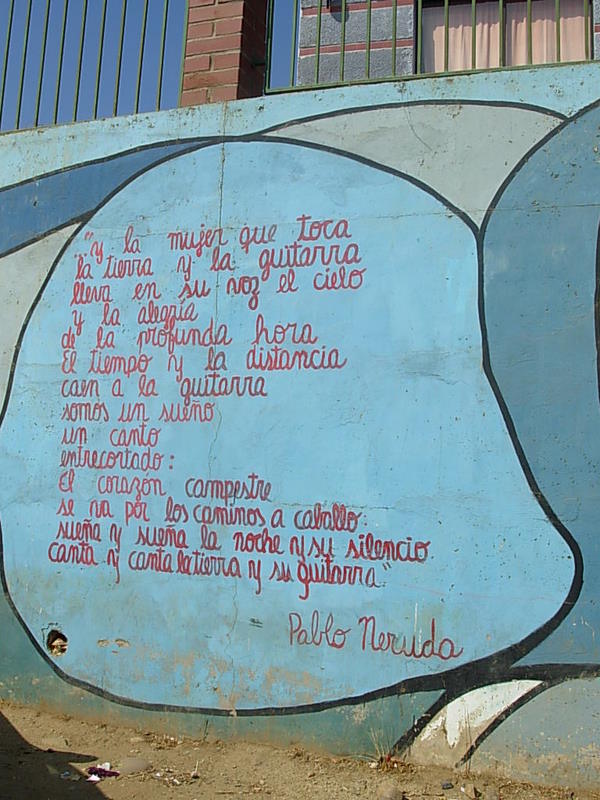 "y la mujer que toca
la tierra y la guitarra
lleva en su voz el cielo
y la alegria
de la profunda hora
El tiempo y la distancia
caen a la guitarra
somos un sueño
un canto
entrecortado:
El corazón campestre
se va por los caminos a caballo:
sueña y sueña la noche y su silencio.
canta y canta la tierra y su guitarra"
Pablo Neruda